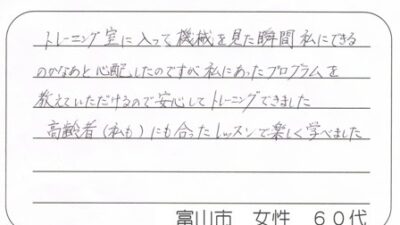 トレーニング室に入って機械を見た瞬間私にできる
のかなあと心配したのですが私にあったプログラムを
教えていただけるので安心してトレーニングできました
高齢者(私も)にも合ったレッスンで楽しく学べました
富山市 女性 60代